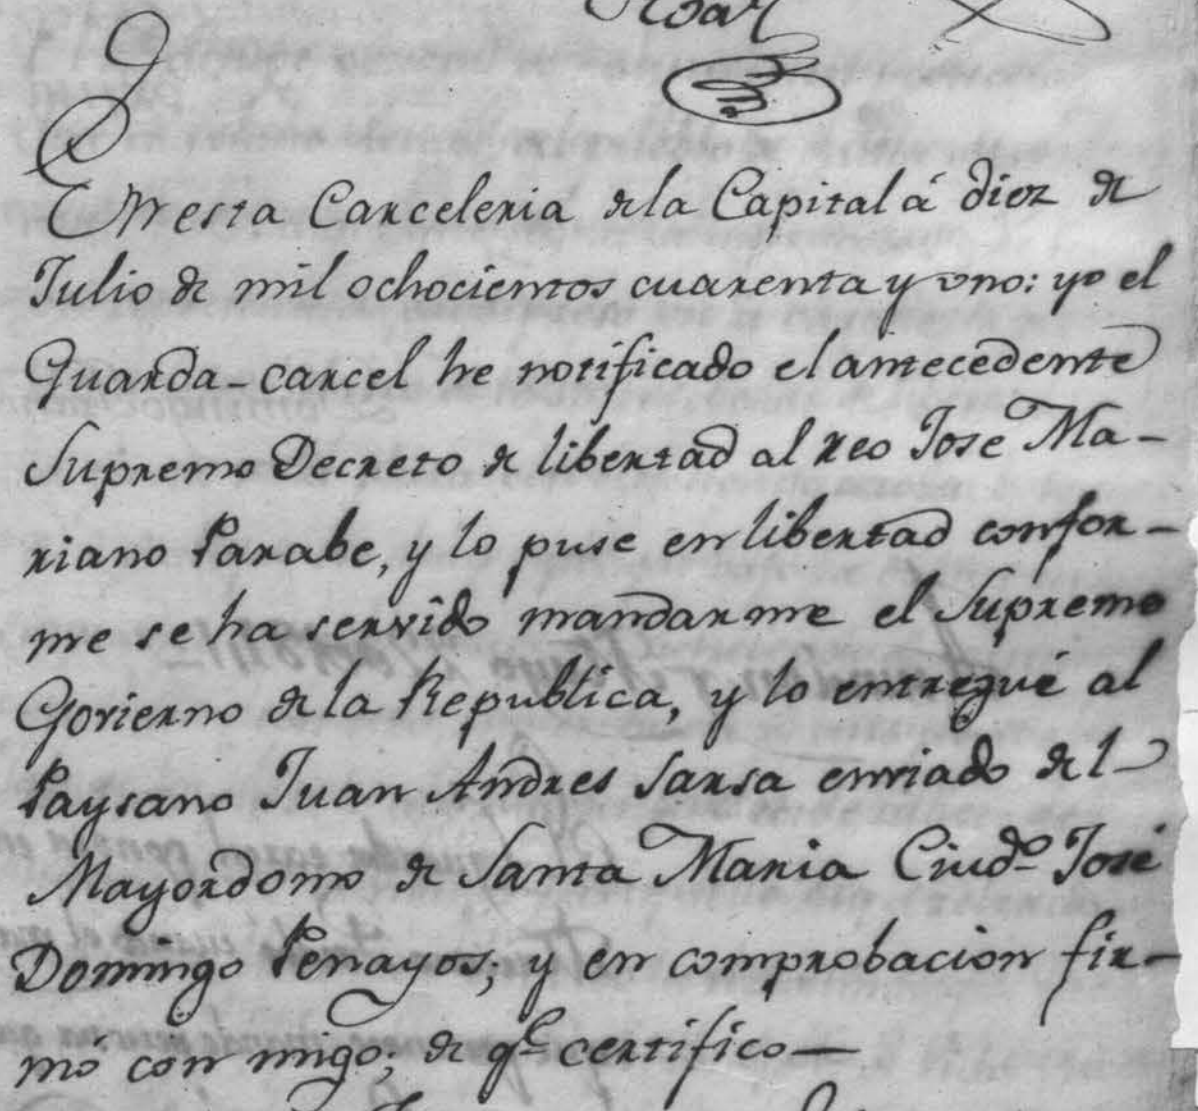 Enesta Carceleria de la Capital á diez de
Julio de mil ochocientos cuarenta y uno: yo el
Guarda-carcel he notificado el antecedente
Supremo Decreto de libertad al reo Jose Ma-
riano Parabe, y lo puse en libertad confor-
me se ha servido mandarme el Supremo
Govierno de la Republica, y lo entregué al
Paysano Juan Andres Sarsa enviado del
Mayordomo de Santa Maria Ciudº José
Domingo Penayos; y en comprobacion fir-
mó con migo; de qᵉ certifico—